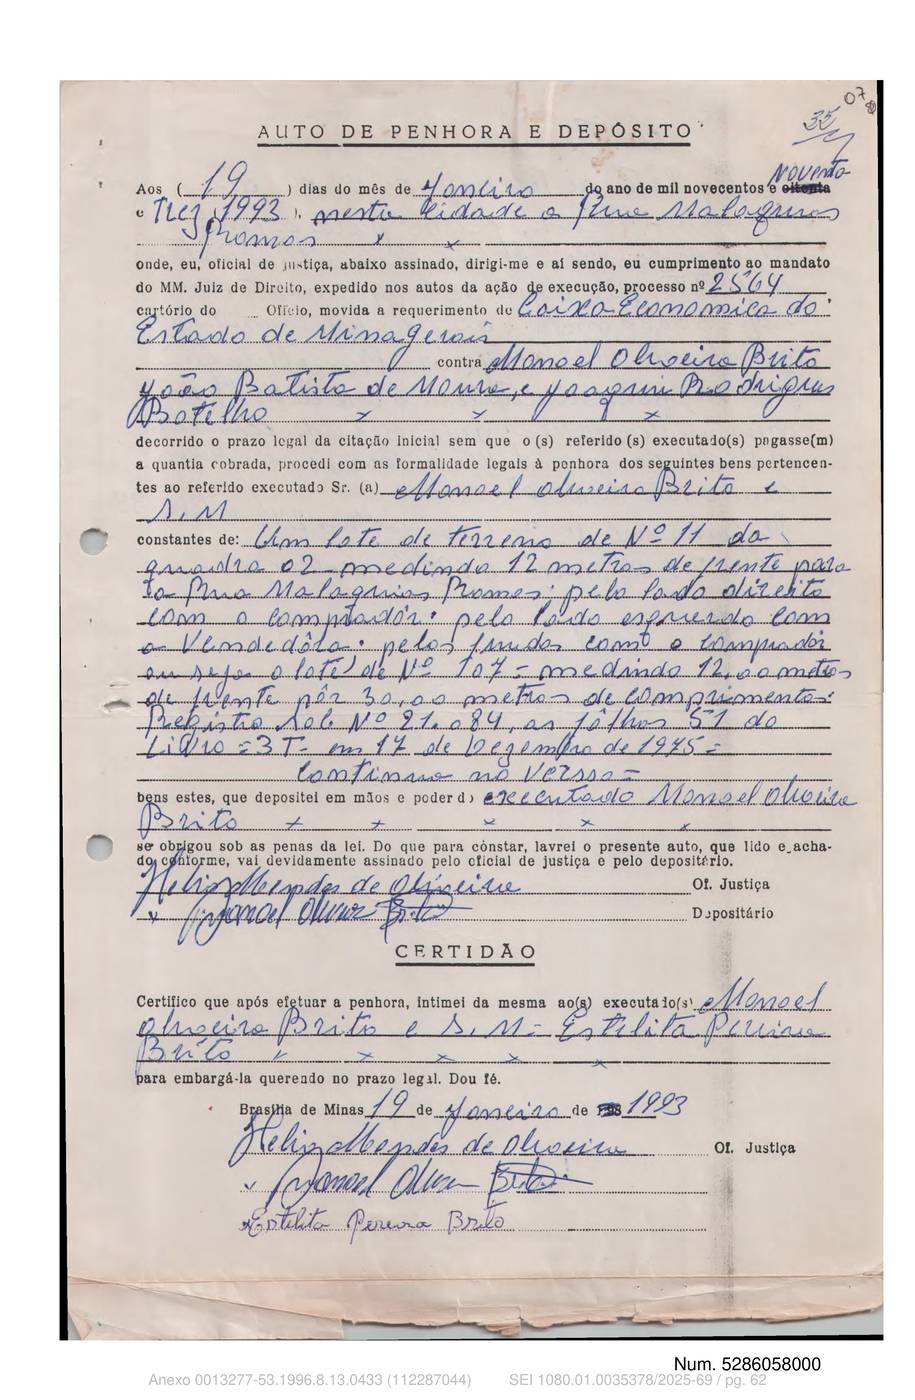 07
35
AUTO DE PENHORA E DEPÓSITO
Novento
Aos ( 19 ) dias do mês de Janeiro do ano de mil novecentos e oitenta
e Trez, 1993 ), nesta Cidade a Rua Malaquias
Ramos x x
onde, eu, oficial de justiça, abaixo assinado, dirigi-me e aí sendo, eu cumprimento ao mandato
do MM. Juiz de Direito, expedido nos autos da ação de execução, processo nº 2564
cartório do Ofício, movida a requerimento de Caixa Economica do
Estado de Minas gerais
contra Manoel Oliveira Brito
João Batista de Moura, e Joaquim Rodrigues
Botelho x x x
decorrido o prazo legal da citação inicial sem que o (s) referido (s) executado(s) pagasse(m)
a quantia cobrada, procedi com as formalidade legais à penhora dos seguintes bens pertencen-
tes ao referido executado Sr. (a) Manoel Oliveira Brito e
S, M
constantes de: Um lote de terreno de Nº 11 da
quadra 02 - medindo 12 metros de frente para
a Rua Malaquias Ramos: pelo lado direito
com o comprador: pelo lado esquerdo com
a Vendedôra: pelos fundos com o comprador
ou seja o lote de Nº 107 = medindo 12,00 metros
de frente pôr 30,00 metros de comprimento:
Registro sob Nº 21.084, as fôlhas 51 do
Livro = 3 T- em 17 de Dezembro de 1975 =
Continua no Verso =
bens estes, que depositei em mãos e poder do executado Manoel Oliveira
Brito x x x x x
se obrigou sob as penas da lei. Do que para constar, lavrei o presente auto, que lido e acha-
do conforme, vai devidamente assinado pelo oficial de justiça e pelo depositário.
Helio Mendes de Oliveira Of. Justiça
x Manoel Oliveira Brito Depositário
CERTIDÃO
Certifico que após efetuar a penhora, intimei da mesma ao(s) executado(s) Manoel
Oliveira Brito e S, M = Estilita Pereira
Brito x x x x
para embargá-la querendo no prazo legal. Dou fé.
Brasília de Minas 19 de Janeiro de 1993
Helio Mendes de Oliveira Of. Justiça
x Manoel Oliveira Brito
x Estilita Pereira Brito
Num. 5286058000
Anexo 0013277-53.1996.8.13.0433 (112287044) SEI 1080.01.0035378/2025-69 / pg. 62